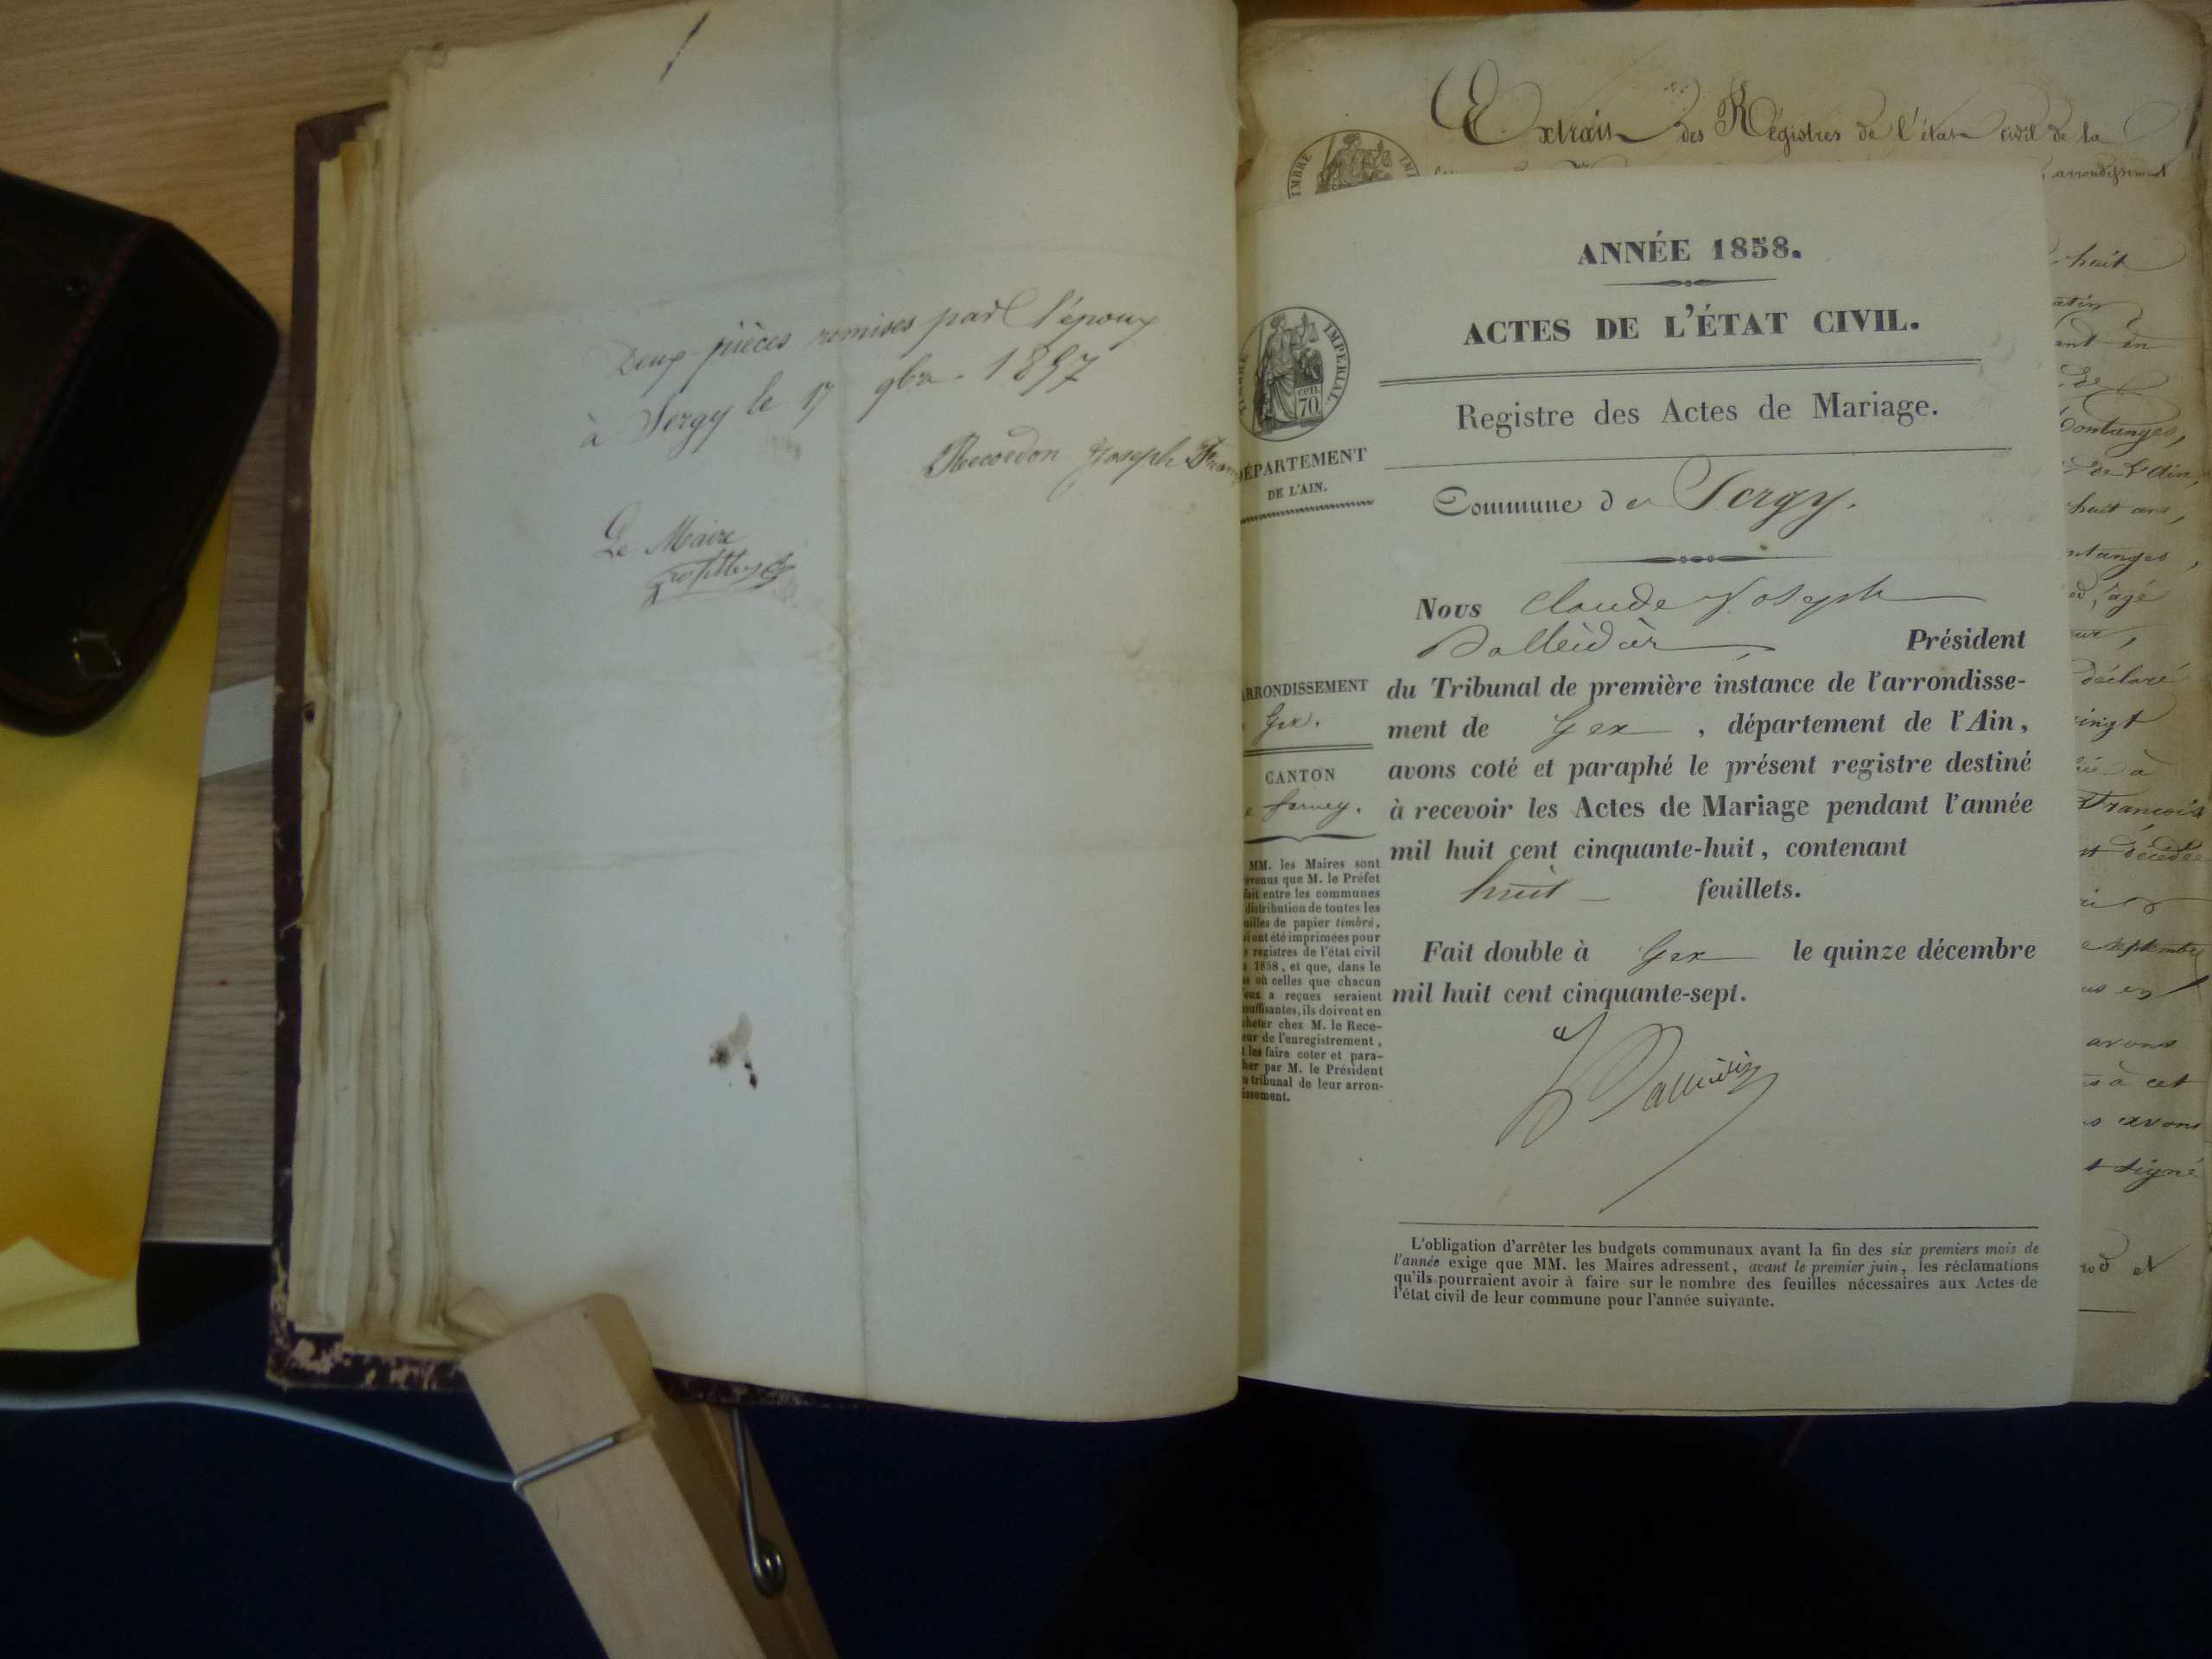 Deux pièces remises par l'époux
à Sergy le 17 9bre 1857
Recordon Joseph Fran
Le Maire
Extrait des Régistres de l'état civil de la
arrondissement
TIMBRE IMPERIAL
CENT. 70
DÉPARTEMENT
DE L'AIN.
ARRONDISSEMENT
Gex.
CANTON
Ferney.
MM. les Maires sont
evenus que M. le Préfet
fait entre les communes
distribution de toutes les
uilles de papier timbré,
i ont été imprimées pour
s registres de l'état civil
1858, et que, dans le
s où celles que chacun
'eux a reçues seraient
suffisantes, ils doivent en
cheter chez M. le Rece-
eur de l'enregistrement,
t les faire coter et para-
her par M. le Président
u tribunal de leur arron-
issement.
ANNÉE 1858.
ACTES DE L'ÉTAT CIVIL.
Registre des Actes de Mariage.
Commune de Sergy.
Nous Claude Joseph
Président
du Tribunal de première instance de l'arrondisse-
ment de Gex, département de l'Ain,
avons coté et paraphé le présent registre destiné
à recevoir les Actes de Mariage pendant l'année
mil huit cent cinquante-huit, contenant
huit feuillets.
Fait double à Gex le quinze décembre
mil huit cent cinquante-sept.
L'obligation d'arrêter les budgets communaux avant la fin des six premiers mois de
l'année exige que MM. les Maires adressent, avant le premier juin, les réclamations
qu'ils pourraient avoir à faire sur le nombre des feuilles nécessaires aux Actes de
l'état civil de leur commune pour l'année suivante.
huit
de
de l'Ain,
huit ans,
âgé
déclaré
vingt
à
François
décédée
septembre
avons
à cet
avons
signé
et